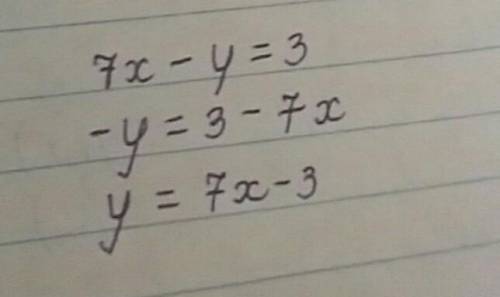 7x - y = 3
-y = 3 - 7x
y = 7x - 3